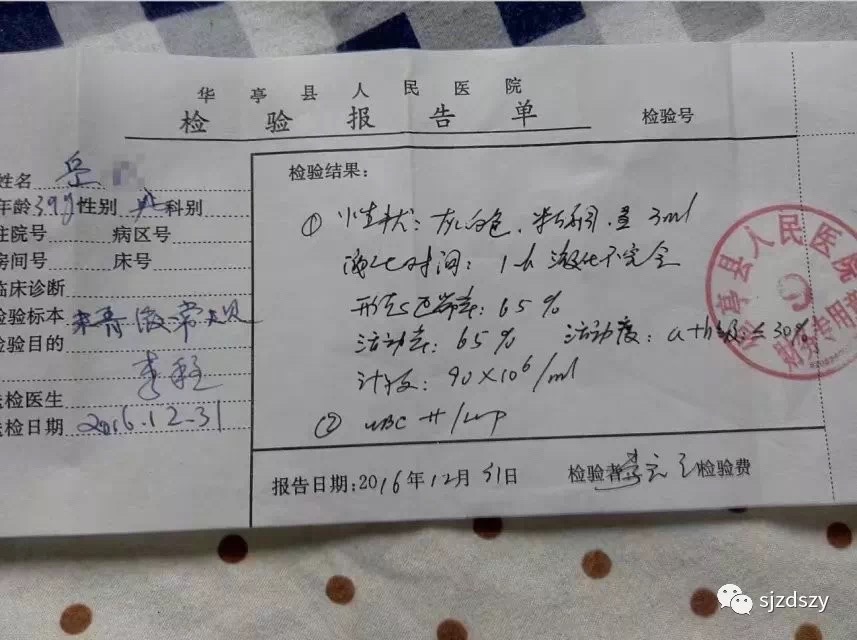 华亭县人民医院
检验报告单
检验号
姓名 岳
年龄 39岁 性别 男 科别
住院号 病区号
房间号 床号
临床诊断
检验标本 精液常规
检验目的
送检医生
送检日期 2016.12.31
检验结果：
① 性状：灰白色. 粘稠. 量 3ml
液化时间：1h 液化不完全
形态正常率：65%
活动率：65% 活动度：a+b级：≤30%
计数：90×10⁶/ml
② WBC ++/HP
报告日期：2016年12月31日 检验者 检验费
华亭县人民医院
财务专用章
sjzdszy